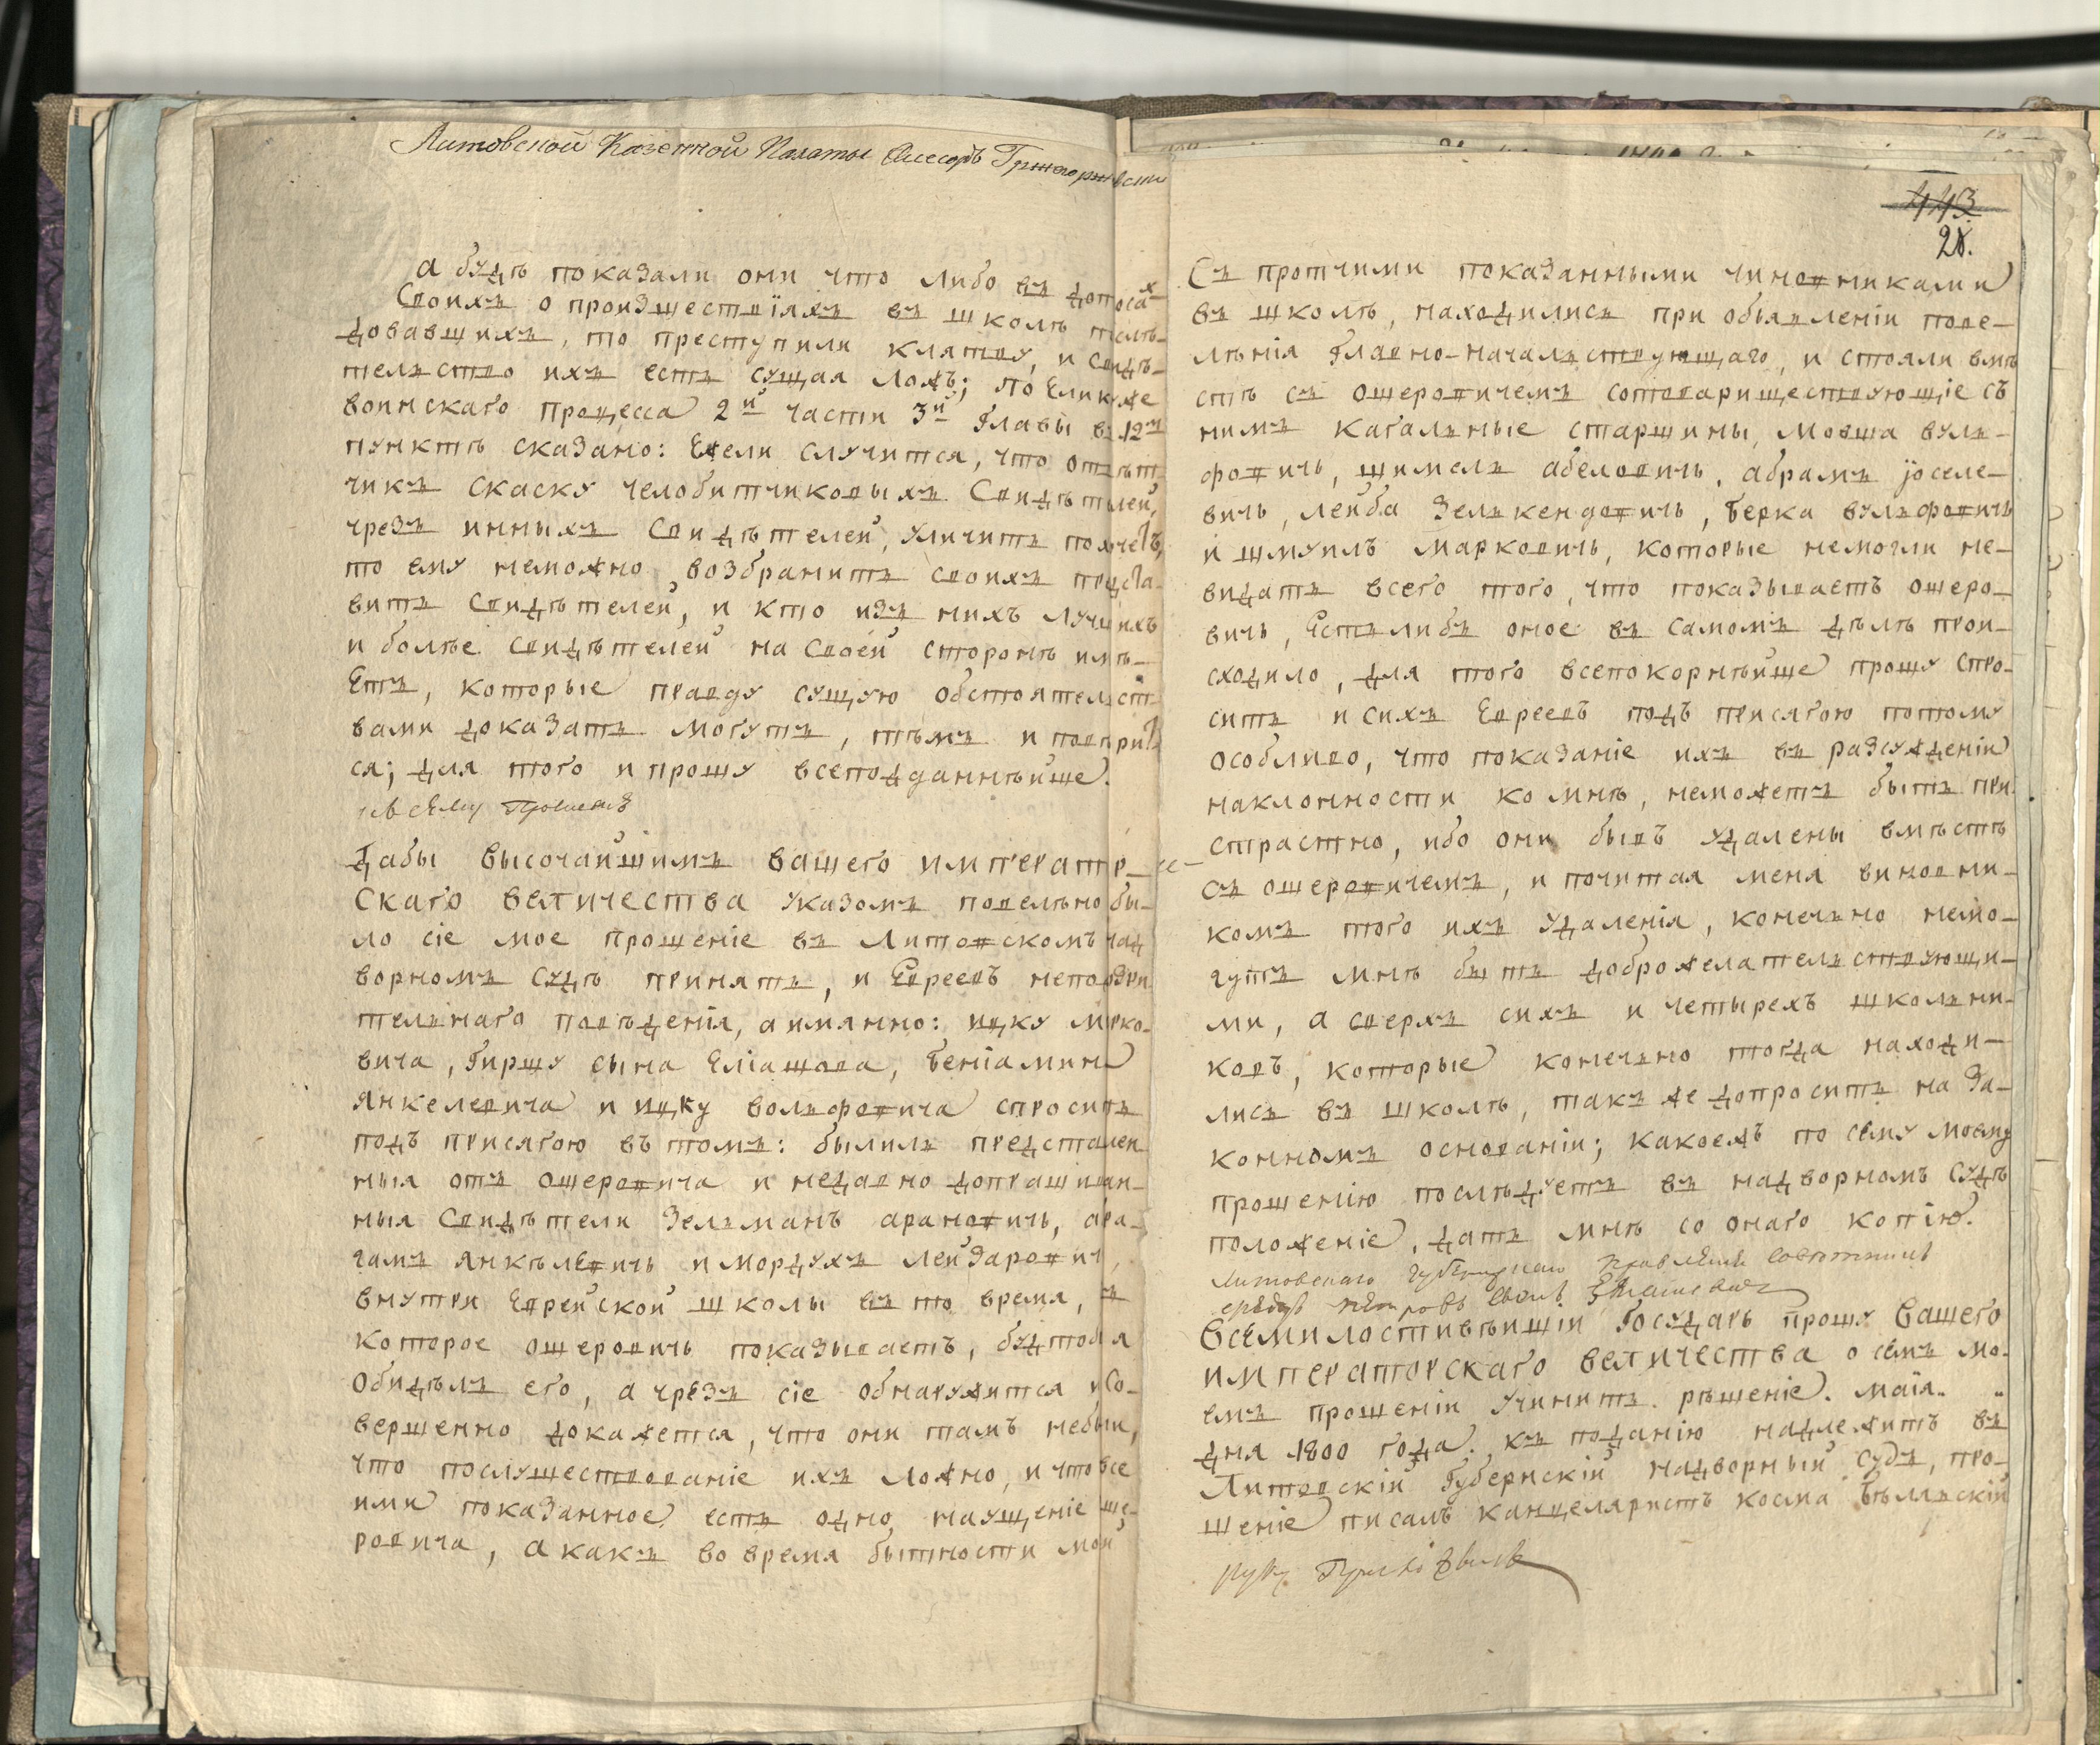 Литовской Казенной Палаты Ассесоръ Гржегоржевски
а будѣ показали они что либо въ допоса х
Своихъ о произшествіяхъ въ школѣ послѣ-
довавшихъ, то преступили клятву, и свидѣ-
тельство ихъ есть сущая ложь; по Елику же
воинскаго процесса 2й части 3й главы въ 12мъ
пунктѣ сказано: Ежели случится, что отвѣт
чикъ скаску челобитчиковыхъ Свидѣтелей,
чрезъ инныхъ Свидѣтелей, уличить похочетъ,
то ему неможно возбранить своихъ предста-
вить Свидѣтелей, и кто изъ нихъ лучшихъ
и болѣе свидѣтелей на своей сторонѣ имѣ-
Етъ, которые правду сущую обстоятельст-
вами доказать могутъ, тѣмъ и поверит
ся; для того и прошу всеподданнѣйше.
къ сему прошенію
Дабы высочайшимъ вашего императр- се-
Скаго величества указомъ повелѣно бы-
ло сіе мое прошеніе въ Литовскомъ над
ворномъ судѣ принять, и Евреевъ неподзри
тельнаго поведенія, а имянно: ицку мерко-
вича, Гиршу сына Еліашова, беніамина
янкелевича и ицку вольфовича спросить
подъ присягою въ томъ: былиль представлен
ныя отъ ошеровича и недавно допрашиван-
ныя Свидѣтели Зельманъ арановичъ, авра-
гамъ янкѣлевичъ и мордухъ лейзаровичъ,
внутри Еврейской школы въ то время, въ
которое ошеровичъ показываетъ, будтобы я
обидѣлъ его, а чрезъ сіе обнаружится и со-
вершенно докажется, что они тамъ небыли,
что послушествованіе ихъ ложно, и что все
ими показанное есть одно наущеніе оше-
ровича, а какъ во время бытности моей
443
28.
Съ протчими показанными чиновниками
въ школѣ, находились при объявленіи пове-
лѣнія главно-начальствующаго, и стояли вмѣ
стѣ съ ошеровичемъ сотовариществующіе съ
нимъ кагальные старшины, мовша вуль-
фовичъ, шимель абеловичъ, абрамъ іоселе-
вичъ, лейба Зелькендовичъ, берка вульфовичъ
и шмуилъ марковичъ, которые немогли не-
видать всего того, что показываетъ ошеро-
вичъ, Естьлибъ оное въ самомъ дѣлѣ прои-
сходило, для того всепокорнѣйше прошу спро-
сить и сихъ Евреевъ подъ присягою потому
особливо, что показаніе ихъ въ разсужденіи
наклонности ко мнѣ, неможетъ быть при-
страстно, ибо они бывъ удалены вмѣстѣ
съ ошеровичемъ, и почитая меня виновни-
комъ того ихъ удаленія, конечно немо-
гутъ мнѣ быть доброжелательствующи-
ми, а сверхъ сихъ и четырехъ школьни-
ковъ, которые конечьно тогда находи-
лись въ школѣ, такъ же допросить на за-
конномъ основаніи; какоежъ по сему моему
прошенію послѣдуетъ въ надворномъ судѣ
положеніе, дать мнѣ со онаго копію.
Литовскаго Губернскаго Правленія Совѣтникъ
Всемилостивѣйшій Государь прошу вашего
императорскаго величества о семъ мо-
емъ прошеніи учинить рѣшеніе. маія. "
дня 1800 года. къ поданію надлежитъ въ
Литовскій Губернскій надворный Судъ, про-
шеніе писалъ канцеляристъ косма бѣлявскій
руку Приложилъ